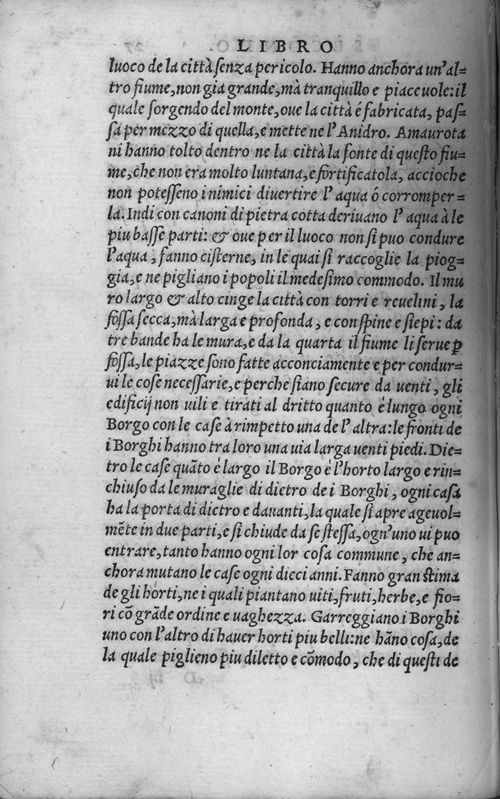 LIBRO
luoco de la città senza pericolo. Hanno anchora un'al=
tro fiume, non gia grande, mà tranquillo e piaceuole: il
quale sorgendo del monte, oue la città é fabricata, pas=
sa per mezzo di quella, e mette ne l'Anidro. Amaurota
ni hanno tolto dentro ne la città la fonte di questo fiu=
me, che non era molto luntana, e fortificatola, accioche
non potesseno i nimici diuertire l'aqua ó corromper=
la. Indi con canoni di pietra cotta deriuano l'aqua à le
piu basse parti: & oue per il luoco non si puo condure
l'aqua, fanno cisterne, in le quai si raccoglie la piog=
gia, e ne pigliano i popoli il medesimo commodo. Il mu
ro largo & alto cinge la città con torri e reuelini, la
fossa secca, mà larga e profonda, e con spine e siepi: da
tre bande ha le mura, e da la quarta il fiume li serue ꝑ
fossa, le piazze sono fatte acconciamente e per condur=
ui le cose necessarie, e perche siano secure da uenti, gli
edificij non uili e tirati al dritto quanto é lungo ogni
Borgo con le case à rimpetto una de l'altra: le fronti de
i Borghi hanno tra loro una uia larga uenti piedi. Die=
tro le case quãto è largo il Borgo è l'horto largo e rin=
chiuso da le muraglie di dietro de i Borghi, ogni casa
ha la porta di dietro e dauanti, la quale si apre ageuol=
mẽte in due parti, e si chiude da se stessa, ogn'uno ui puo
entrare, tanto hanno ogni lor cosa commune, che an=
chora mutano le case ogni dieci anni. Fanno gran stima
de gli horti, ne i quali piantano uiti, fruti, herbe, e fio=
ri cõ grãde ordine e uaghezza. Garreggiano i Borghi
uno con l'altro di hauer horti piu belli: ne hãno cosa, de
la quale piglieno piu diletto e cõmodo, che di questi de